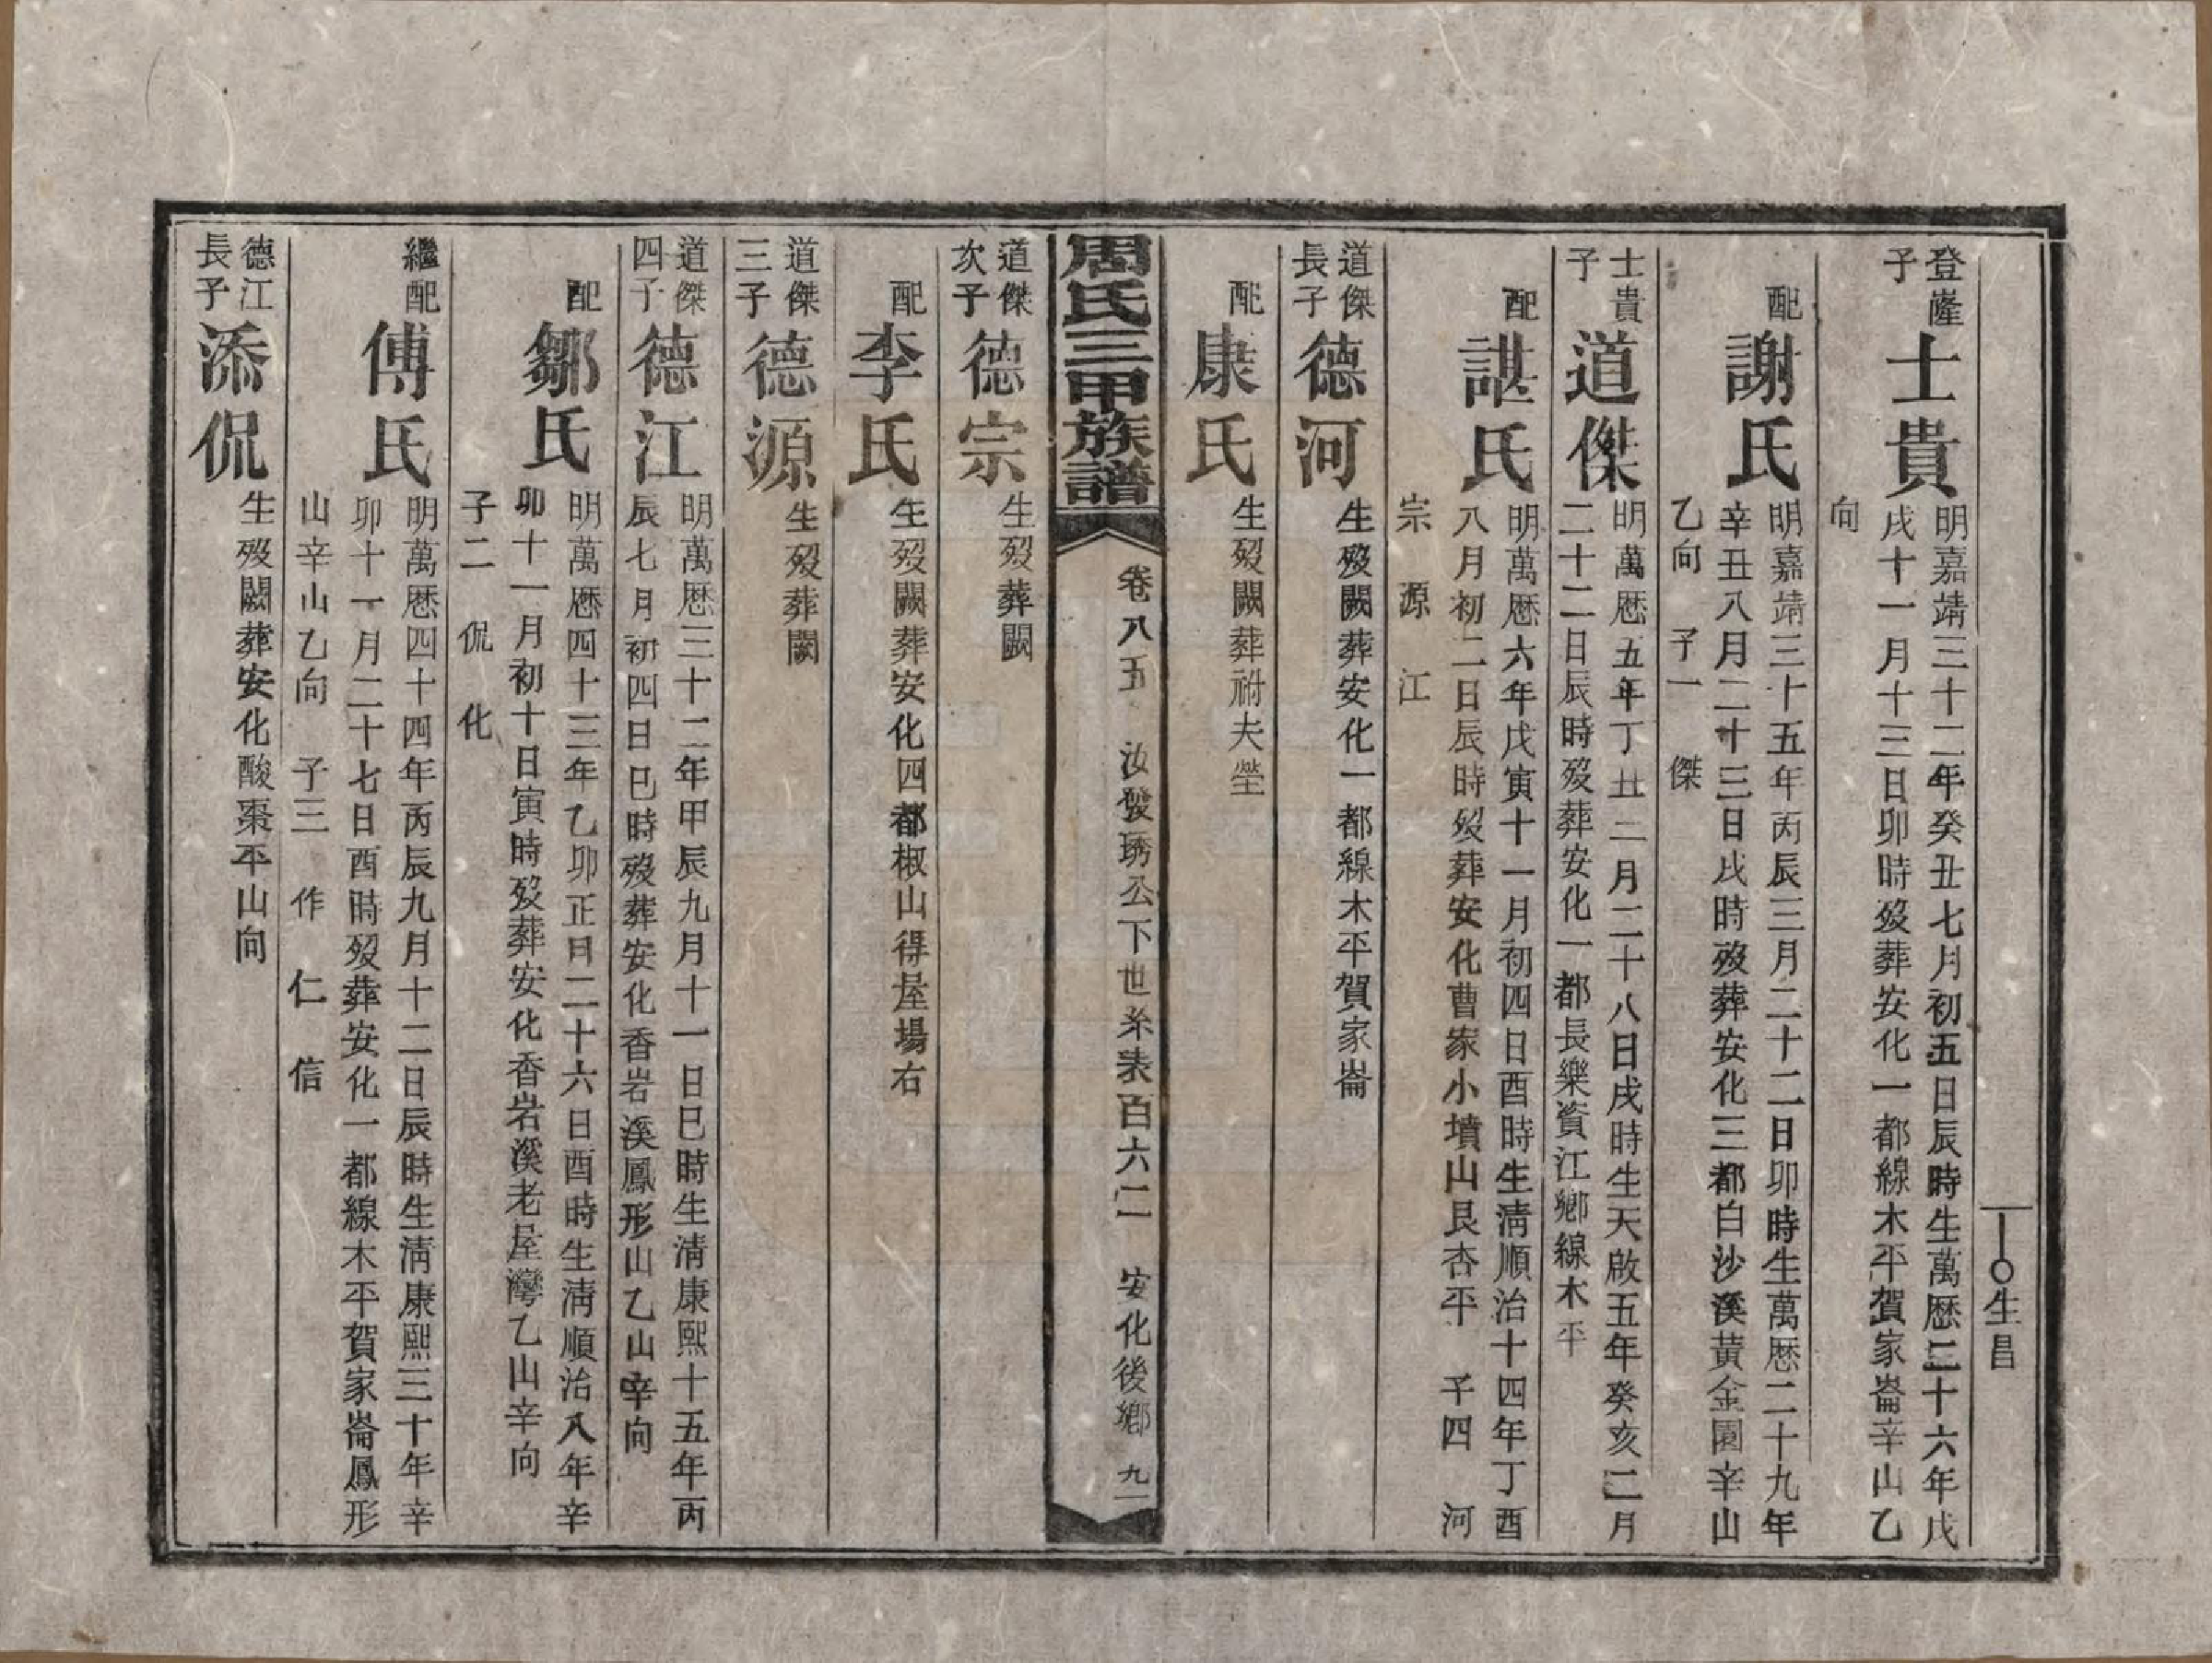 生昌
登嶐
子
士貴
明嘉靖三十二年癸丑七月初五日辰時生萬歷二十六年戊
戌十一月十三日卯時歿葬安化一都線木平賀家崙辛山乙
向
配
謝氏
明嘉靖三十五年丙辰三月二十二日卯時生萬歷二十九年
辛丑八月二十三日戌時歿葬安化三都白沙溪黃金園辛山
乙向 子一 傑
士貴
子
道傑
明萬歷五年丁丑二月二十八日戌時生天啟五年癸亥二月
二十二日辰時歿葬安化一都長樂資江鄉線木平
配
諶氏
明萬歷六年戊寅十一月初四日酉時生清順治十四年丁酉
八月初二日辰時歿葬安化曹家小墳山艮杏平 子四 河
宗 源 江
道傑
長子
德河
生歿闕葬安化一都線木平賀家崙
配
康氏
生歿闕葬祔夫塋
周氏三甲族譜
卷八五 汝發琇公下世系表百六二 安化後鄉 九一
道傑
次子
德宗
生歿葬闕
配
李氏
生歿闕葬安化四都椒山得屋場右
道傑
三子
德源
生歿葬闕
道傑
四子
德江
明萬歷三十二年甲辰九月十一日巳時生清康熙十五年丙
辰七月初四日巳時歿葬安化香岩溪鳳形山乙山辛向
配
鄒氏
明萬歷四十三年乙卯正月二十六日酉時生清順治八年辛
卯十一月初十日寅時歿葬安化香岩溪老屋灣乙山辛向
子二 侃 化
繼配
傅氏
明萬歷四十四年丙辰九月十二日辰時生清康熙三十年辛
卯十一月二十七日酉時歿葬安化一都線木平賀家崙鳳形
山辛山乙向 子三 作 仁 信
德江
長子
添侃
生歿闕葬安化酸棗平山向